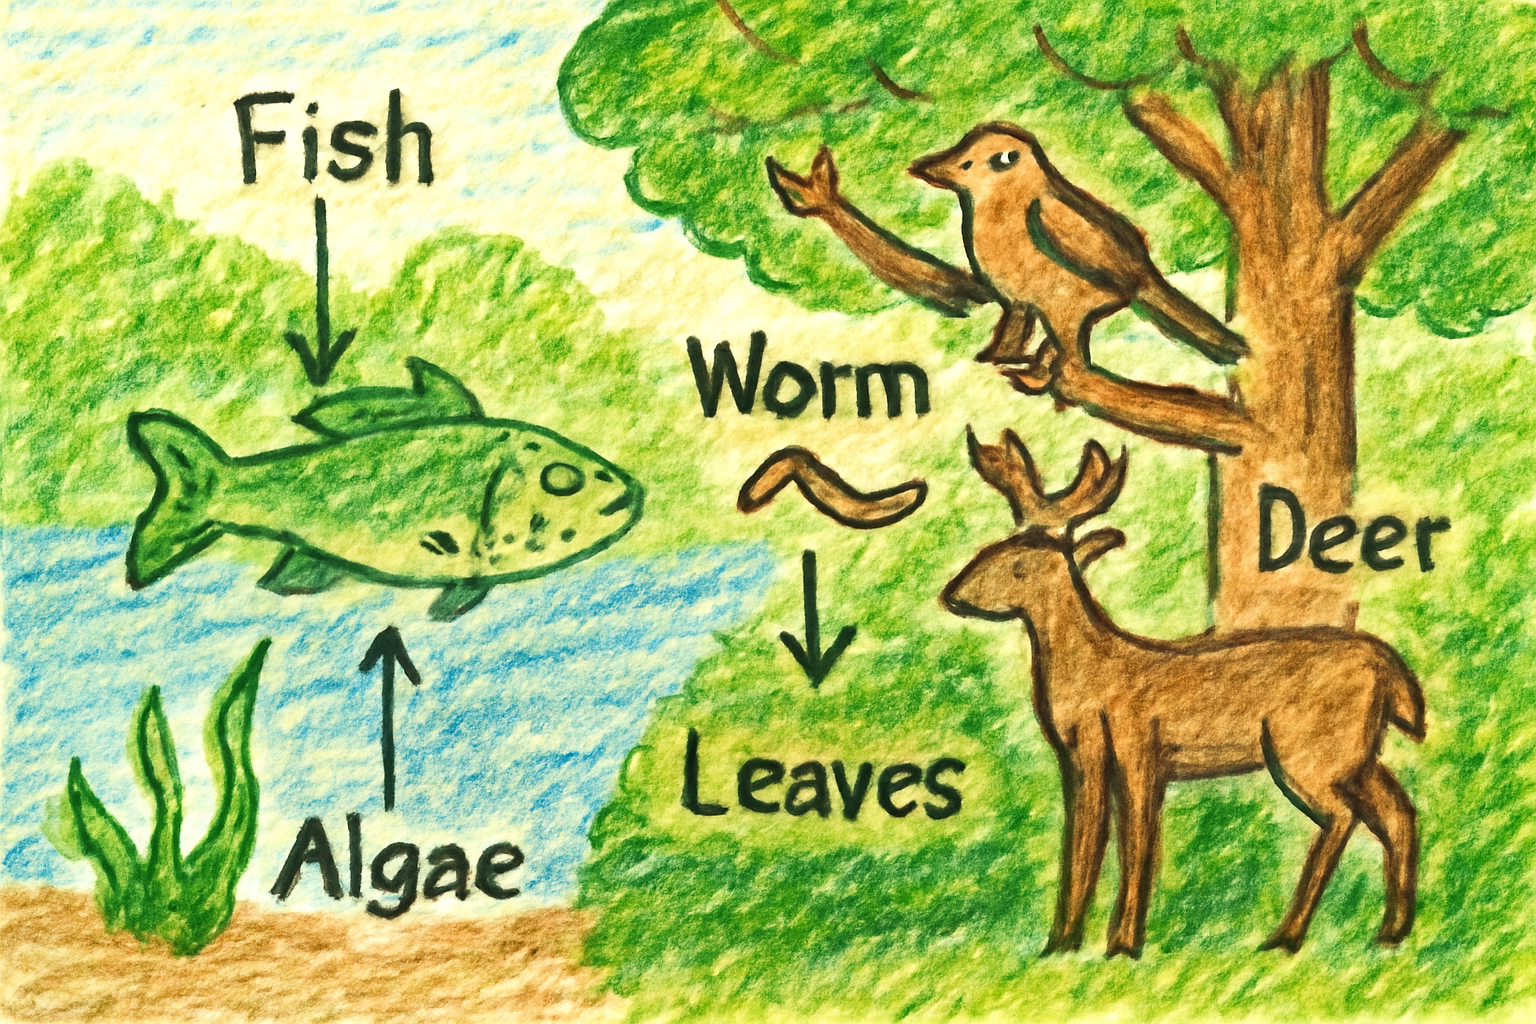 Fish
Worm
Deer
Leaves
Algae